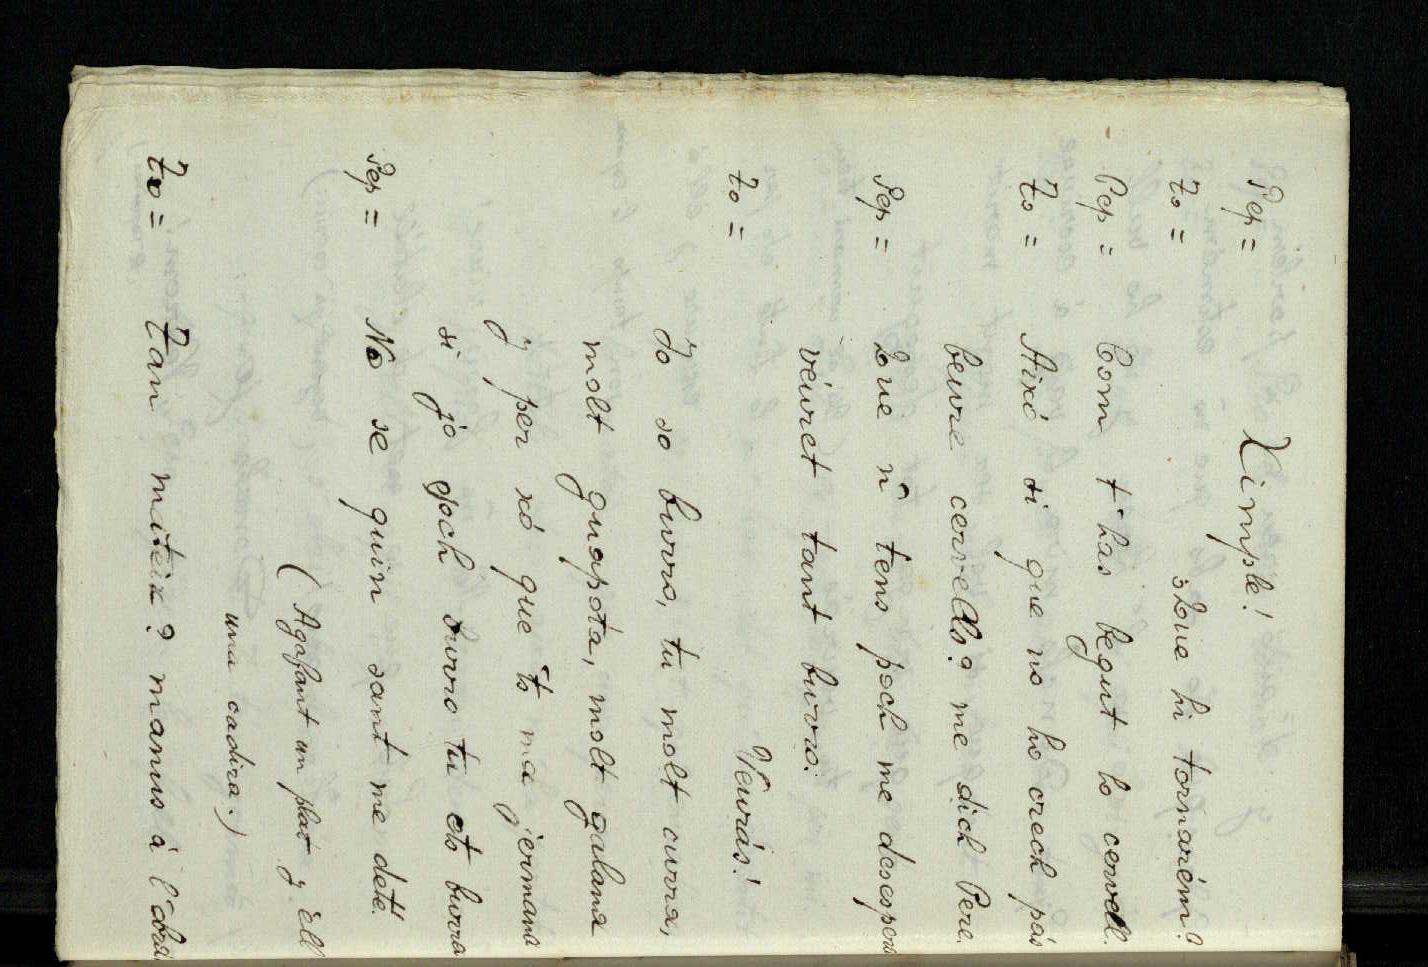 Pep = Ximple!
To = ¿Que hi tornarém?
Pep = Com t' has begut lo cervell.
To = Aixó si que no ho crech pás
beure cervells? me dich Pere.
Pep = Que n̂ tens poch me desespera
véuret tant burro.
To = Veurás!
Jo so burro, tu molt curra,
molt guapota, molt galana
y per xó que 'ts ma jermana
si jo soch burro tu ets burra
Pep = No se quin sant me deté.
(Agafant un plat y ell
una cadira.)
To = Tan mateix? manus á l' obra